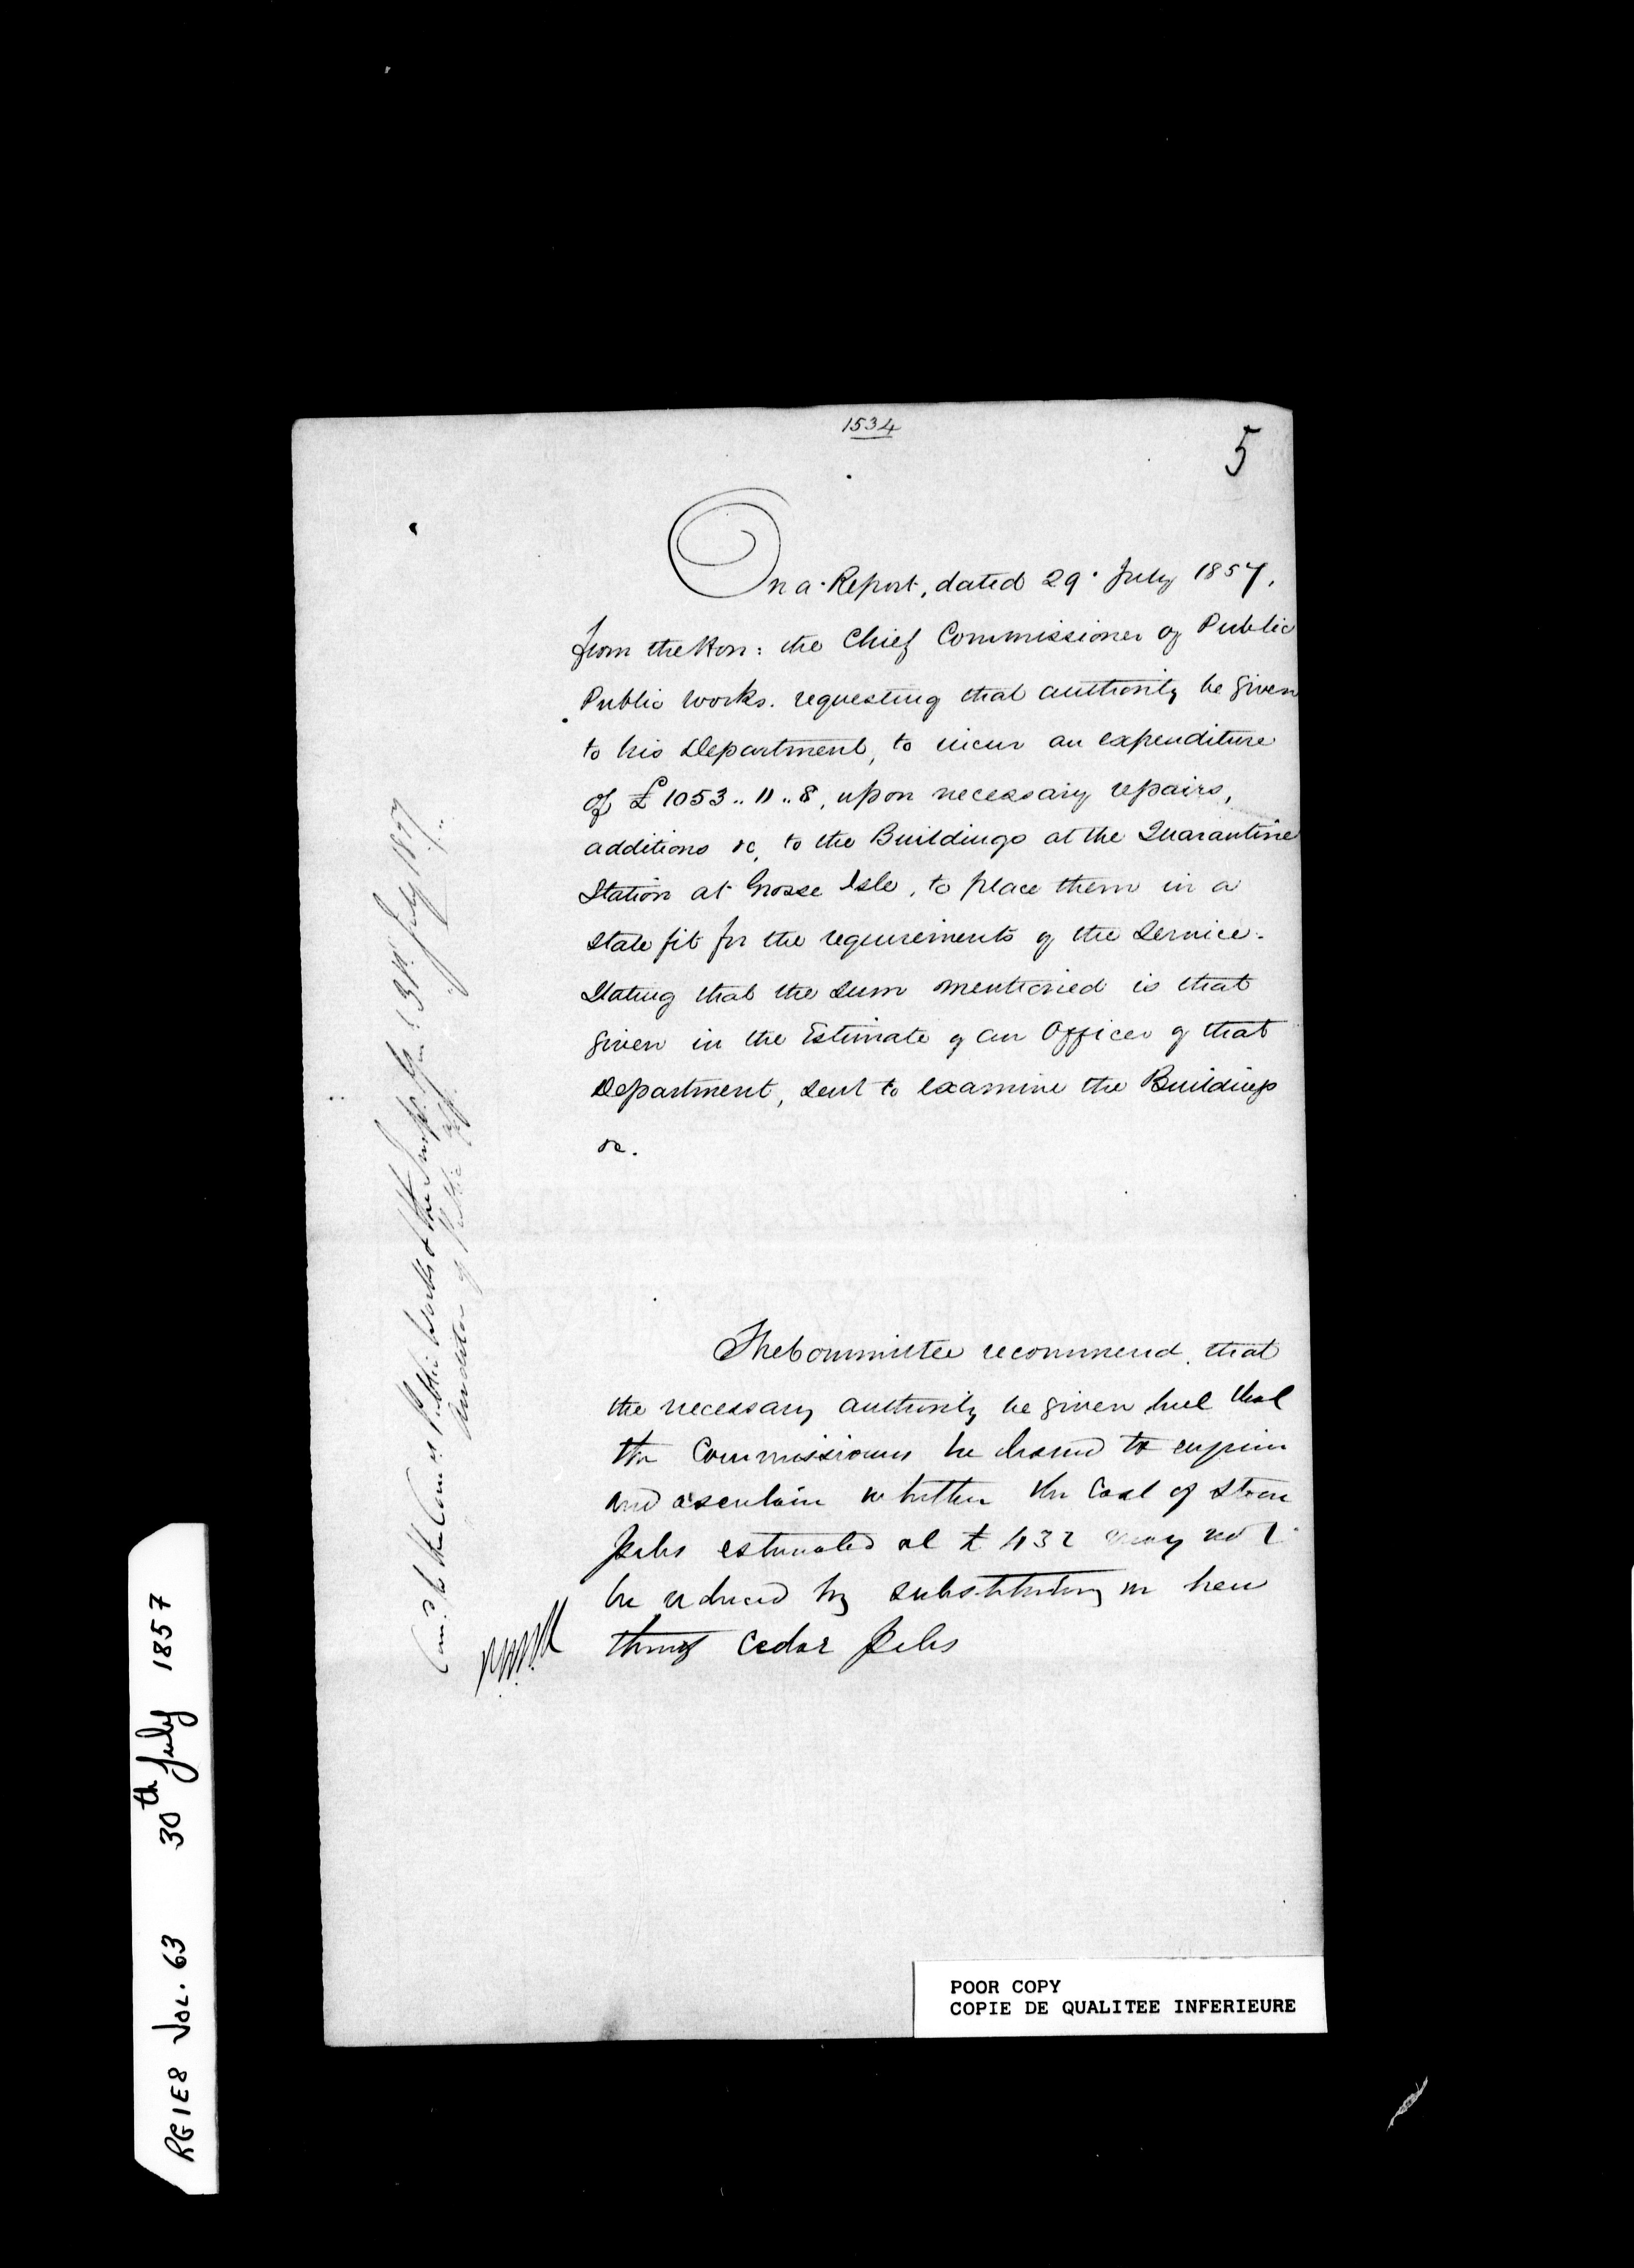 1534
5
On a Report, dated 29 July 1857,
from the Hon: the Chief Commissioner of Public
Public Works. requesting that authority be given
to his Department, to incur an expenditure
of £1053..11..8, upon necessary repairs,
additions &c, to the Buildings at the Quarantine
Station at Grosse Isle, to place them in a
state fit for the requirements of the Service.
Stating that the sum mentioned is that
given in the Estimate of an Officer of that
Department, sent to examine the Buildings
&c.
The Committee recommend, that
the necessary authority be given but that
the Commissioners be desired to enquire
and ascertain whether the cost of
estimated at £ 432 may not
be reduced by substituting in lieu
thereof Cedar
the Public Works & the 31st July 1857
Auditor of Public
RG1E8 VOL. 63 30th July 1857
POOR COPY
COPIE DE QUALITEE INFERIEURE